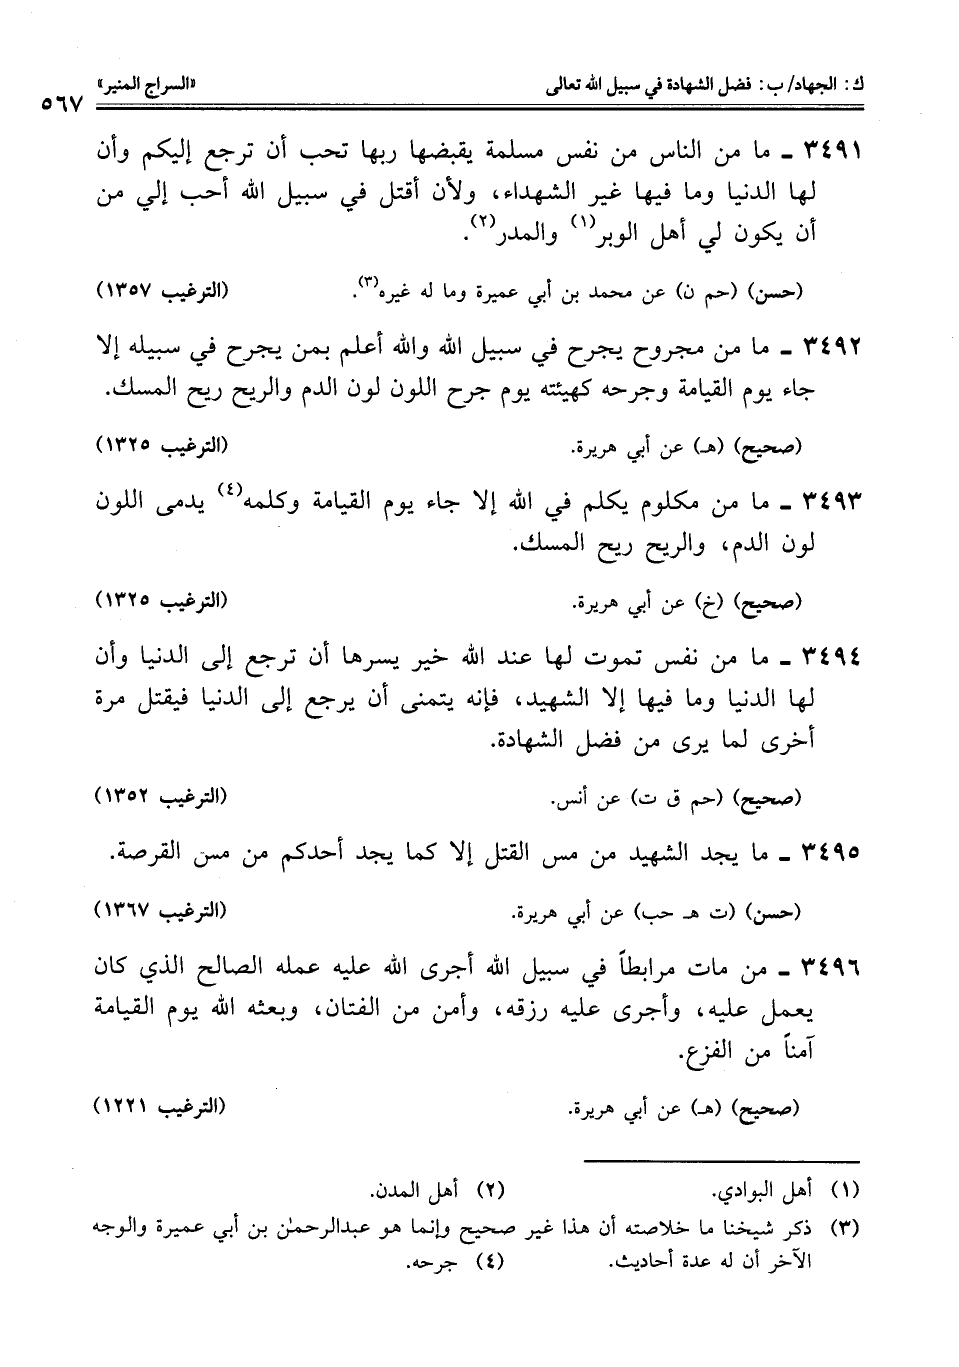 ك: الجهاد/ ب: فضل الشهادة في سبيل الله تعالى «السراج المنير»
٥٦٧
٣٤٩١ ـ ما من الناس من نفس مسلمة يقبضها ربها تحب أن ترجع إليكم وأن
لها الدنيا وما فيها غير الشهداء، ولأن أقتل في سبيل الله أحب إلي من
أن يكون لي أهل الوبر(١) والمدر(٢).
(حسن) (حم ن) عن محمد بن أبي عميرة وما له غيره(٣). (الترغيب ١٣٥٧)
٣٤٩٢ ـ ما من مجروح يجرح في سبيل الله والله أعلم بمن يجرح في سبيله إلا
جاء يوم القيامة وجرحه كهيئته يوم جرح اللون لون الدم والريح ريح المسك.
(صحيح) (هـ) عن أبي هريرة. (الترغيب ١٣٢٥)
٣٤٩٣ ـ ما من مكلوم يكلم في الله إلا جاء يوم القيامة وكلمه(٤) يدمى اللون
لون الدم، والريح ريح المسك.
(صحيح) (خ) عن أبي هريرة. (الترغيب ١٣٢٥)
٣٤٩٤ ـ ما من نفس تموت لها عند الله خير يسرها أن ترجع إلى الدنيا وأن
لها الدنيا وما فيها إلا الشهيد، فإنه يتمنى أن يرجع إلى الدنيا فيقتل مرة
أخرى لما يرى من فضل الشهادة.
(صحيح) (حم ق ت) عن أنس. (الترغيب ١٣٥٢)
٣٤٩٥ ـ ما يجد الشهيد من مس القتل إلا كما يجد أحدكم من مس القرصة.
(حسن) (ت هـ حب) عن أبي هريرة. (الترغيب ١٣٦٧)
٣٤٩٦ ـ من مات مرابطاً في سبيل الله أجرى الله عليه عمله الصالح الذي كان
يعمل عليه، وأجرى عليه رزقه، وأمن من الفتان، وبعثه الله يوم القيامة
آمناً من الفزع.
(صحيح) (هـ) عن أبي هريرة. (الترغيب ١٢٢١)
(١) أهل البوادي. (٢) أهل المدن.
(٣) ذكر شيخنا ما خلاصته أن هذا غير صحيح وإنما هو عبدالرحمٰن بن أبي عميرة والوجه
الآخر أن له عدة أحاديث. (٤) جرحه.